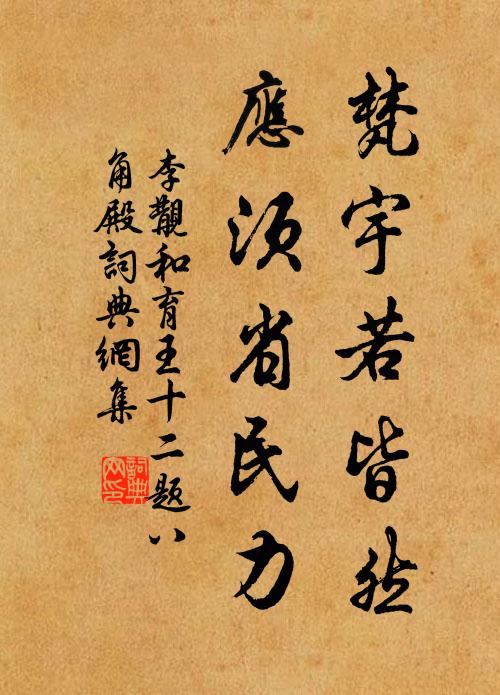 梵宇若皆然
應須省民力
李覯和育王十二题八
角殿詞典網集
詞典
网印